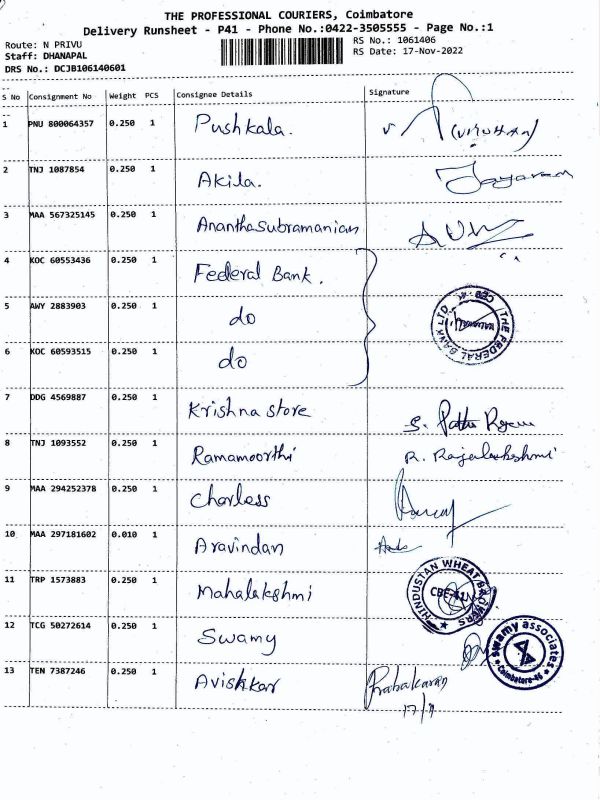 THE PROFESSIONAL COURIERS, Coimbatore
Delivery Runsheet - P41 - Phone No.:0422-3505555 - Page No.:1
Route: N PRIVU
RS No.: 1061406
Staff: DHANAPAL
RS Date: 17-Nov-2022
DRS No.: DCJB106140601
S No Consignment No Weight PCS Consignee Details Signature
1 PNU 800064357 0.250 1 Pushkala. (VIRUTHAN)
2 TNJ 1087854 0.250 1 Akila. Jayaram
3 MAA 567325145 0.250 1 AnanthaSubramanian
4 KOC 60553436 0.250 1 Federal Bank.
5 AWY 2883903 0.250 1 do
THE FEDERAL BANK LTD
6 KOC 60593515 0.250 1 do
7 DDG 4569887 0.250 1 Krishna store S.
8 TNJ 1093552 0.250 1 Ramamoorthi R. Rajalakshmi
9 MAA 294252378 0.250 1 Charless
10 MAA 297181602 0.010 1 Aravindan
11 TRP 1573883 0.250 1 Mahalakshmi HINDUSTAN WHEAT
12 TCG 50272614 0.250 1 Swamy swamy associates Coimbatore-45
13 TEN 7387246 0.250 1 Avishkar Prabakaran
17/11